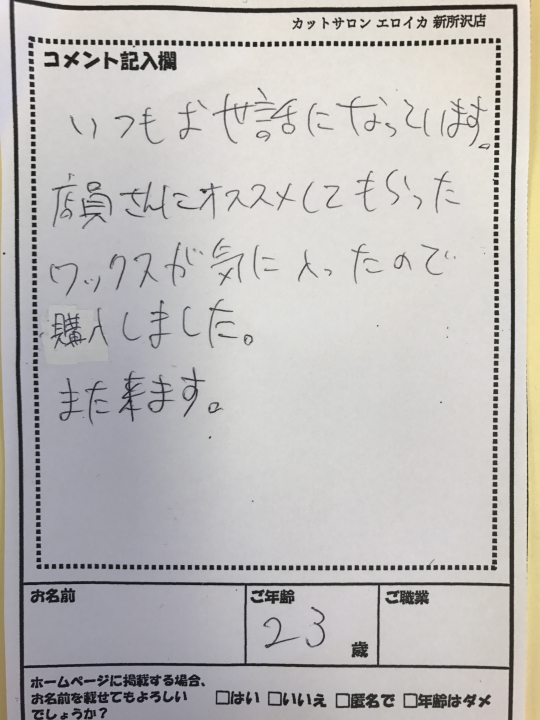 カットサロン エロイカ 新所沢店
コメント記入欄
いつもお世話になっています。
店員さんにオススメしてもらった
ワックスが気に入ったので
購入しました。
また来ます。
お名前
ご年齢
ご職業
23
歳
ホームページに掲載する場合、
お名前を載せてもよろしい
でしょうか？
□はい □いいえ □匿名で □年齢はダメ